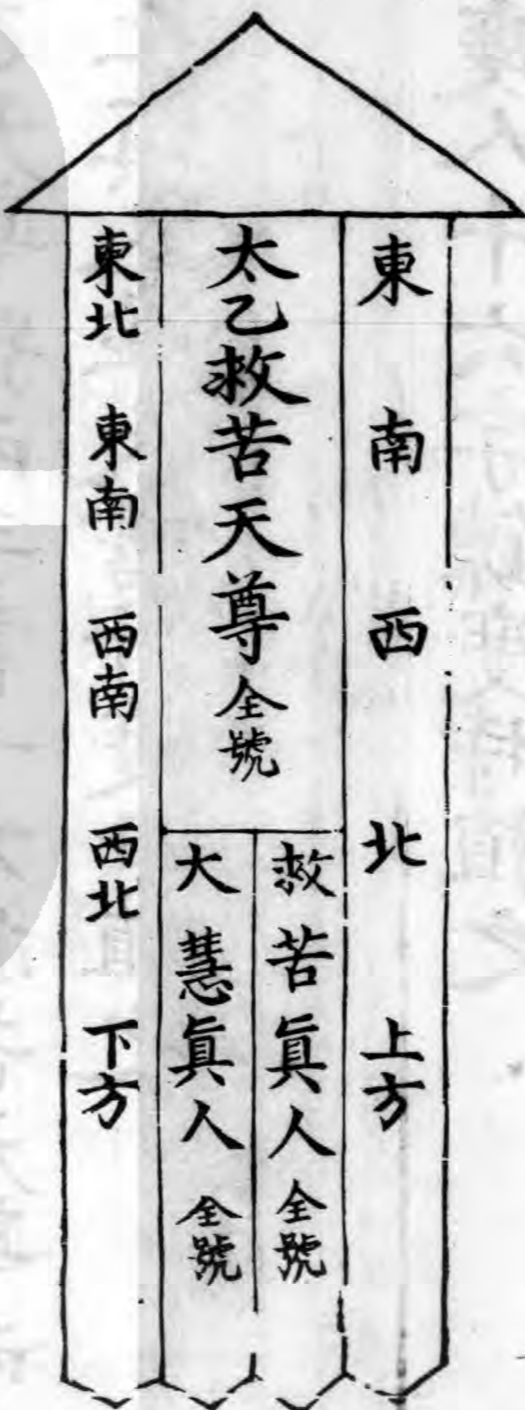 東 南 西 北 上方
太乙救苦天尊 全號
救苦眞人 全號
大慧眞人 全號
東北 東南 西南 西北 下方